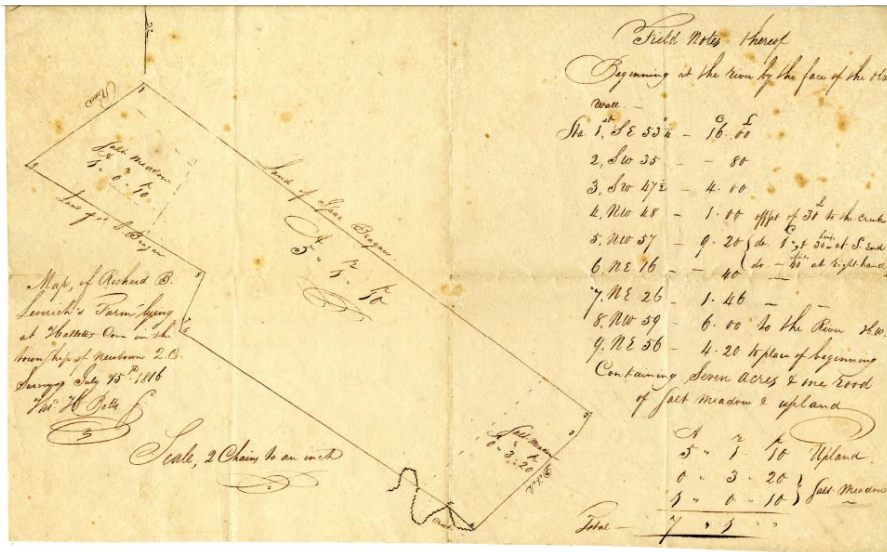 River
Salt Meadow
A r P
1 . 0 . 10
Land of I. Bragaw
Land of Isaac Bragaw.
A r P
5 " 1 . 10
Map, of Richard B.
Leverich's Farm lying
at in the
township of Newtown Q.C.
Surveyed July 15th 1816
Thos H Betts
Scale, 2 Chains to an inch
Salt Meadow
A r P
0 . 3 . 20
Ditch
Creek
Field Notes thereof
Beginning at the river by the face of the old
wall —
at C L
Sta 1, SE 53½ - 16. 00
2, SW 35 - - 80
3, SW 47½ - 4. 00
4, NW 48 - 1. 00 offst of 30 L to the creek
5. NW 57 - 9. 20 do. at S. End
6. NE 16 - - 40 do - at right hand
7. NE 26 - 1. 46 - -
8. NW 59 - 6. 00 to the River H.W.
9. NE 56 - 4. 20 to place of beginning
Containing Seven Acres & one rood
of Salt Meadow & upland
A r P
5 " 1 . 10 Upland
0 " 3 . 20
1 " 0 " 10 } Salt Meadow
Total — 7 " 1 " "